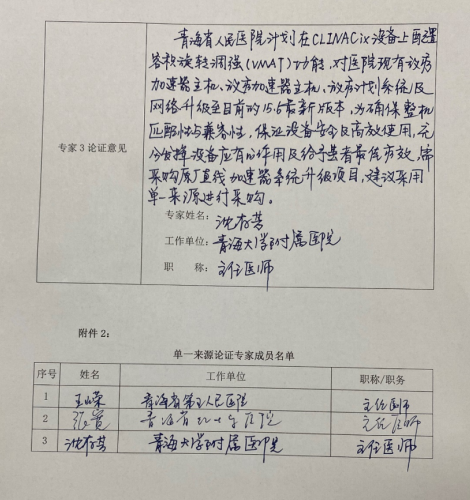 青海省人民医院计划在CLINACix设备上配置
容积旋转调强(VMAT)功能,对医院现有放疗
加速器主机、放疗加速器主机、放疗计划系统及
网络升级至目前的15.6最新版本,为确保整机
匹配性与兼容性,保证设备安全及高效使用,充
分发挥设备应有的作用及给予患者最优疗效,需
采购原厂直线加速器系统升级项目,建议采用
单一来源进行采购。
专家3论证意见
专家姓名:沈存芳
工作单位:青海大学附属医院
职 称:主任医师
附件2:
单一来源论证专家成员名单
序号 姓名 工作单位 职称/职务
1 青海省第五人民医院 主任医师
2 张 青海省 医院 主任医师
3 沈存芳 青海大学附属医院 主任医师